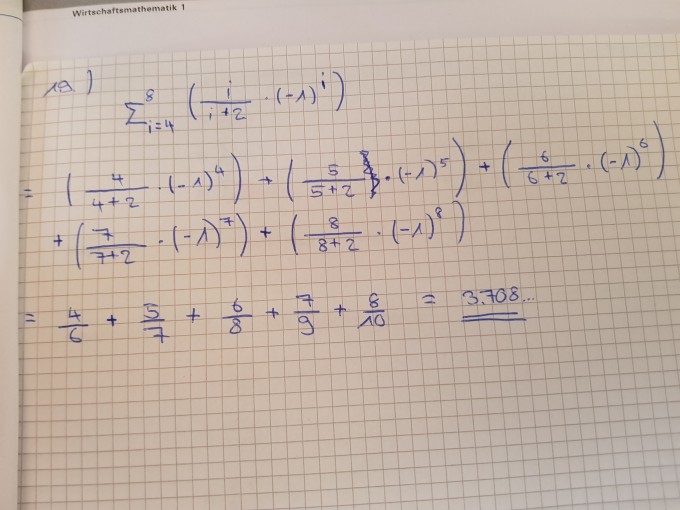 Wirtschaftsmathematik 1
19.)
∑_{i=4}^{8} ( i/(i+2) · (-1)^i )
= ( 4/(4+2) · (-1)^4 ) + ( 5/(5+2) · (-1)^5 ) + ( 6/(6+2) · (-1)^6 )
+ ( 7/(7+2) · (-1)^7 ) + ( 8/(8+2) · (-1)^8 )
= 4/6 + 5/7 + 6/8 + 7/9 + 8/10 = 3.708...